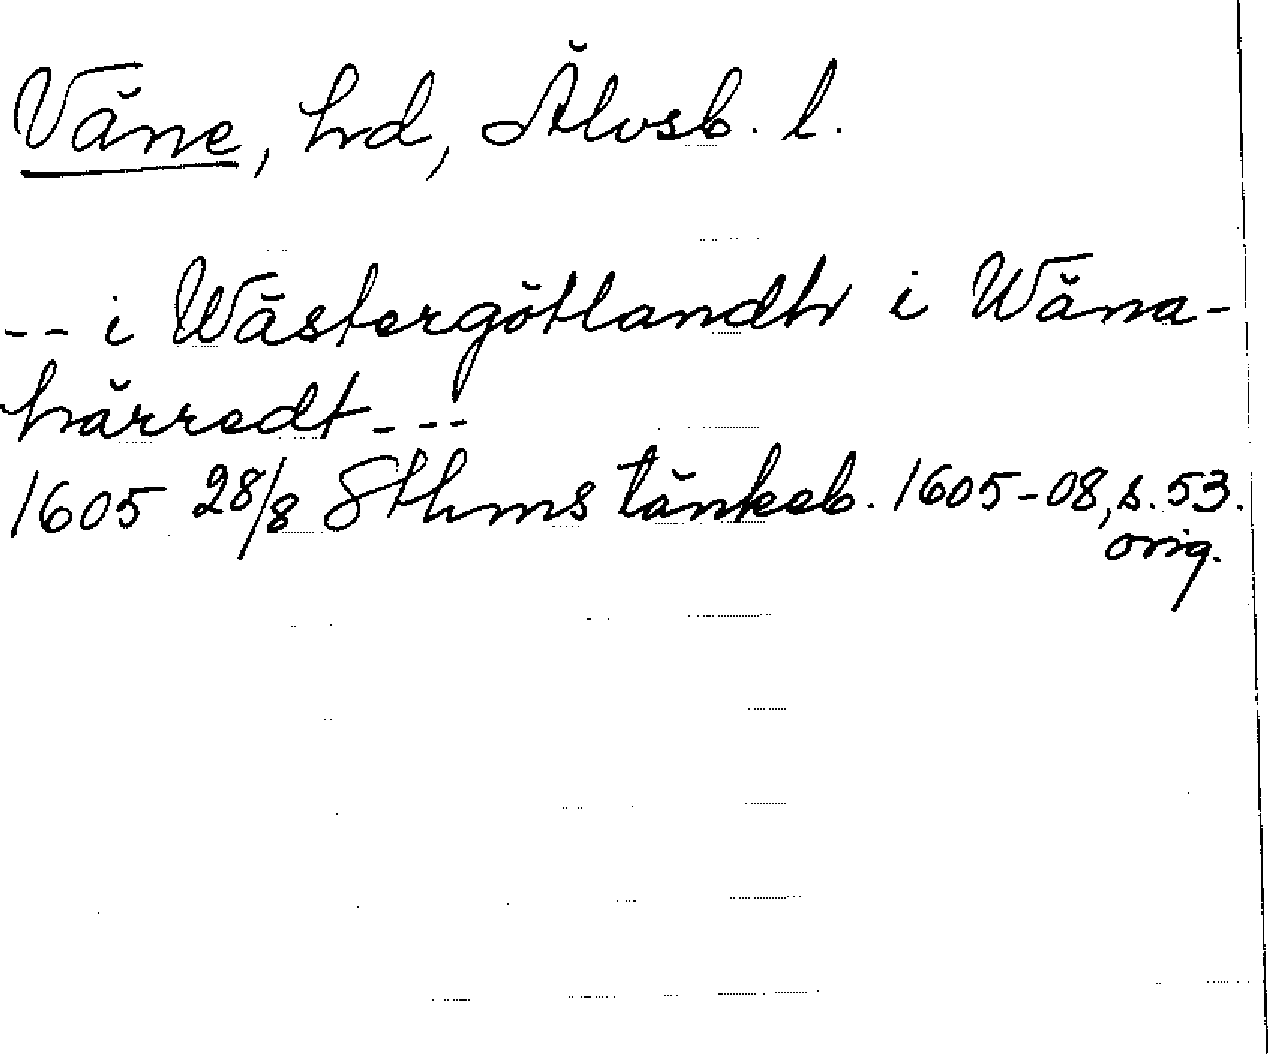 Väne, hd, Älvsb. l.
-- i Wästergötlandh i Wäna-
härredt ---
1605 28/8 Sthms tänkeb. 1605-08, s. 53.
orig.